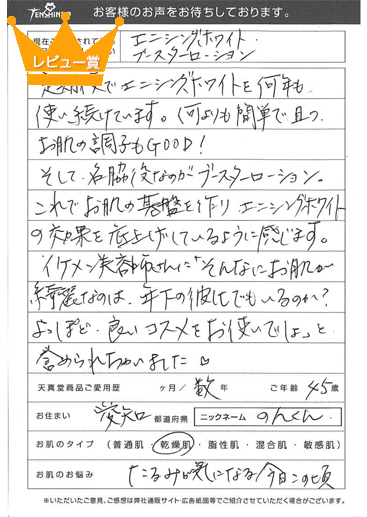 TENSHINDO お客様のお声をお待ちしております。
レビュー賞
現在ご
されて
エニシングホワイト
ブースターローション
定期便でエニシングホワイトを何年も
使い続けています。何よりも簡単で且つ、
お肌の調子もGOOD!
そして名脇役なのがブースターローション。
これでお肌の基盤を作り、エニシングホワイト
の効果を底上げしているように感じます。
イケメン美容師さんに“そんなにお肌が
綺麗なのは、年下の彼氏でもいるのか?
よっぽど、良いコスメをお使いでしょっ”と
誉められちゃいました♡
天真堂商品ご愛用歴 ヶ月/数年 ご年齢 45歳
お住まい 愛知 都道府県 ニックネーム のんくん
お肌のタイプ (普通肌・乾燥肌・脂性肌・混合肌・敏感肌)
お肌のお悩み たるみが気になる今日この頃
※いただいたご意見、ご感想は弊社通販サイト・広告紙面等でご紹介させていただく場合がございます。